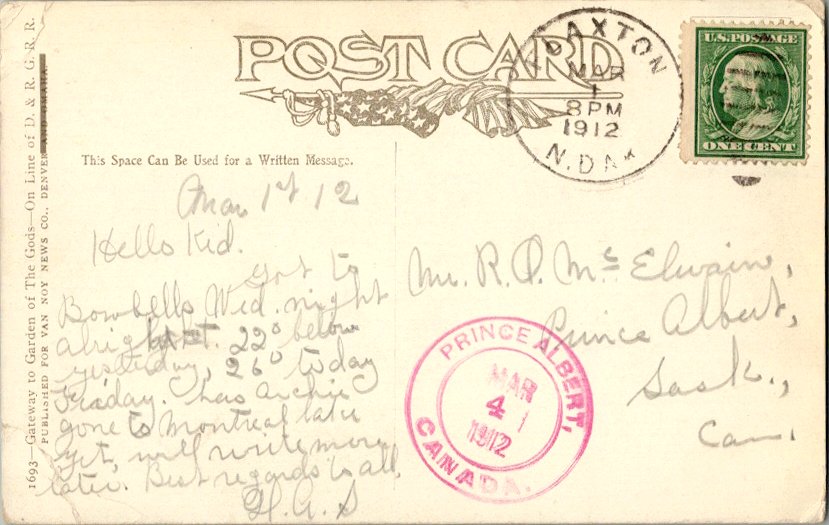 1693—Gateway to Garden of The Gods—On Line of D. & R. G. R. R.
PUBLISHED FOR VAN NOY NEWS CO., DENVER AND OMAHA
POST CARD
This Space Can Be Used for a Written Message.
MAR
1
8 PM
1912
N. DAK
U.S. POSTAGE
ONE CENT
Mar 1st 12
Hello Kid.
Got to
Bowbells Wed. night
alright. 22° below
yesterday, 26° today
Friday. has Archie
gone to Montreal
yet, will write more
later. Best regards to all,
H.A.S
Mr. R. Mc Elwain,
Prince Albert,
Sask.,
Can.
PRINCE ALBERT,
MAR
4
1912
CANADA.